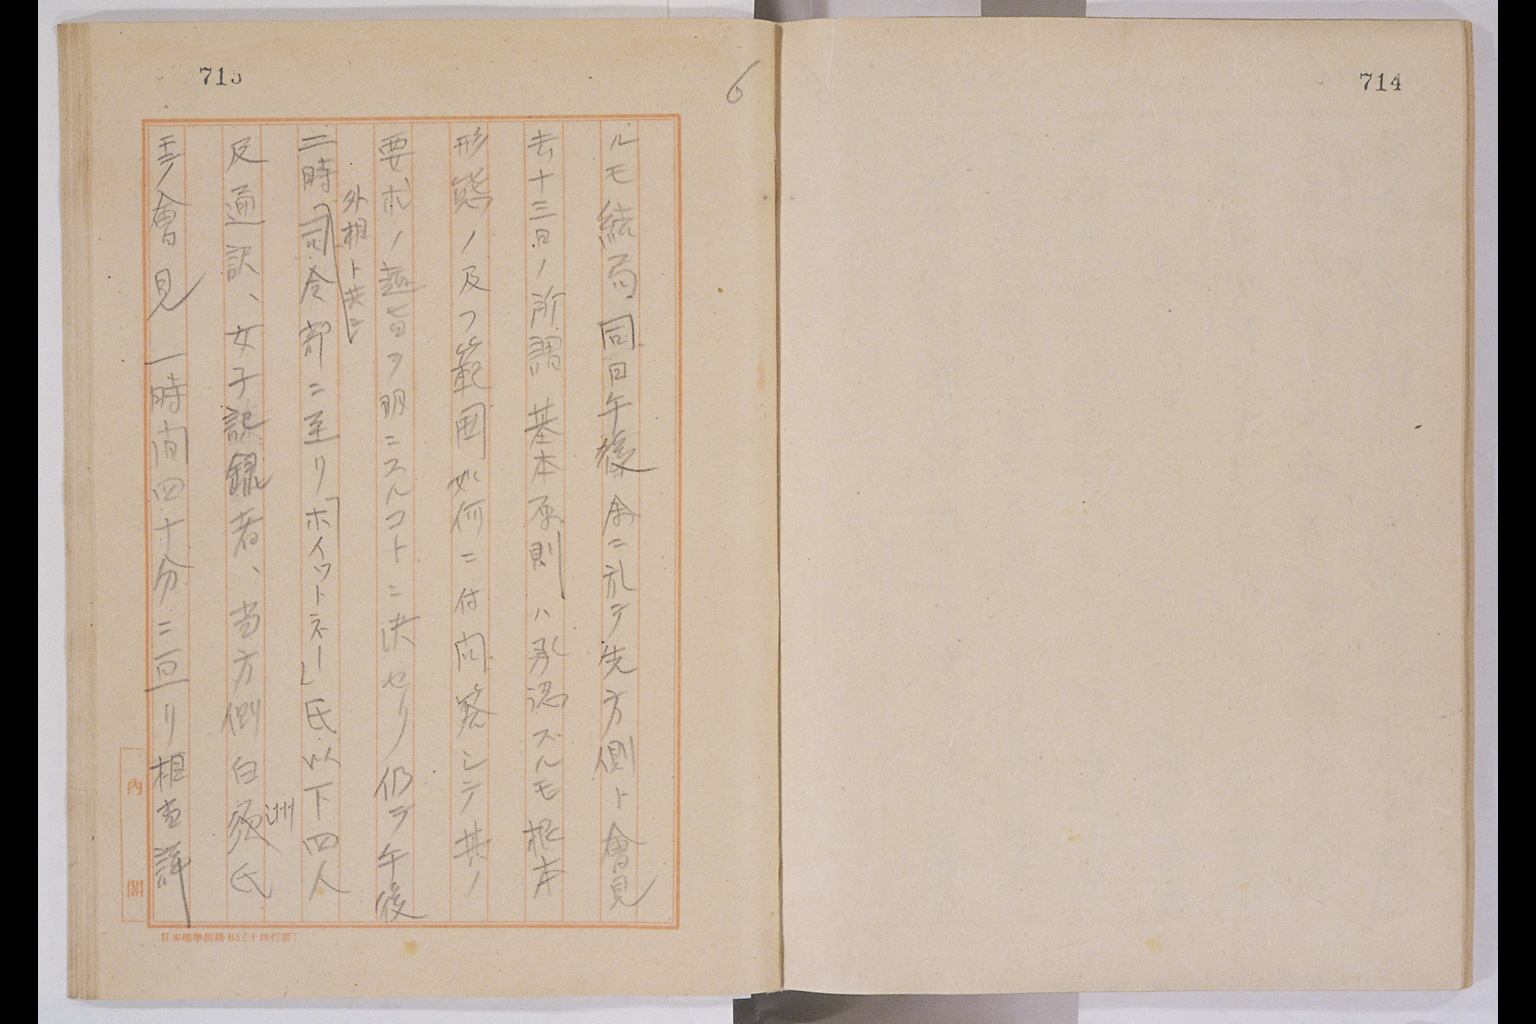 714
715
6
ルモ結局、同日午後余ニ於テ先方側ト會見
去十三日ノ所謂基本原則ハ承認スルモ根本
形態ノ及フ範囲如何ニ付問答シテ其ノ
要求ノ趣旨ヲ明ニスルコトニ決セリ、仍テ午後
外相ト共ニ
二時司令部ニ至リ「ホイットネー」氏以下四人
及通訳、女子記録者、当方側白須氏
洲
ニテ會見 一時間四十分ニ亘リ相当詳
内閣
日本標準規格B5(十四行罫)